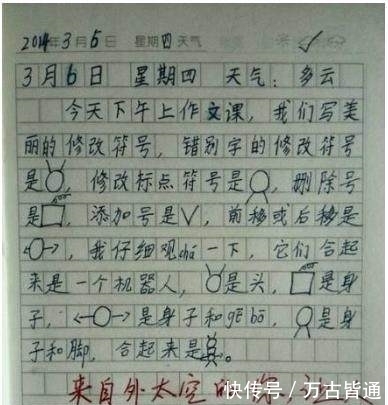 2014年3月6日 星期四天气
3月6日 星期四 天气：多云
今天下午上作文课，我们写美
丽的修改符号，错别字的修改符号
是，修改标点符号是，删除号
是，添加号是√，前移或后移是
，我仔细观chá一下，它们合起
来是一个机器人，是头，是身
子，是身子和gē bō，是身
子和脚，合起来是。
来自外太空的
快传号／万古皆通